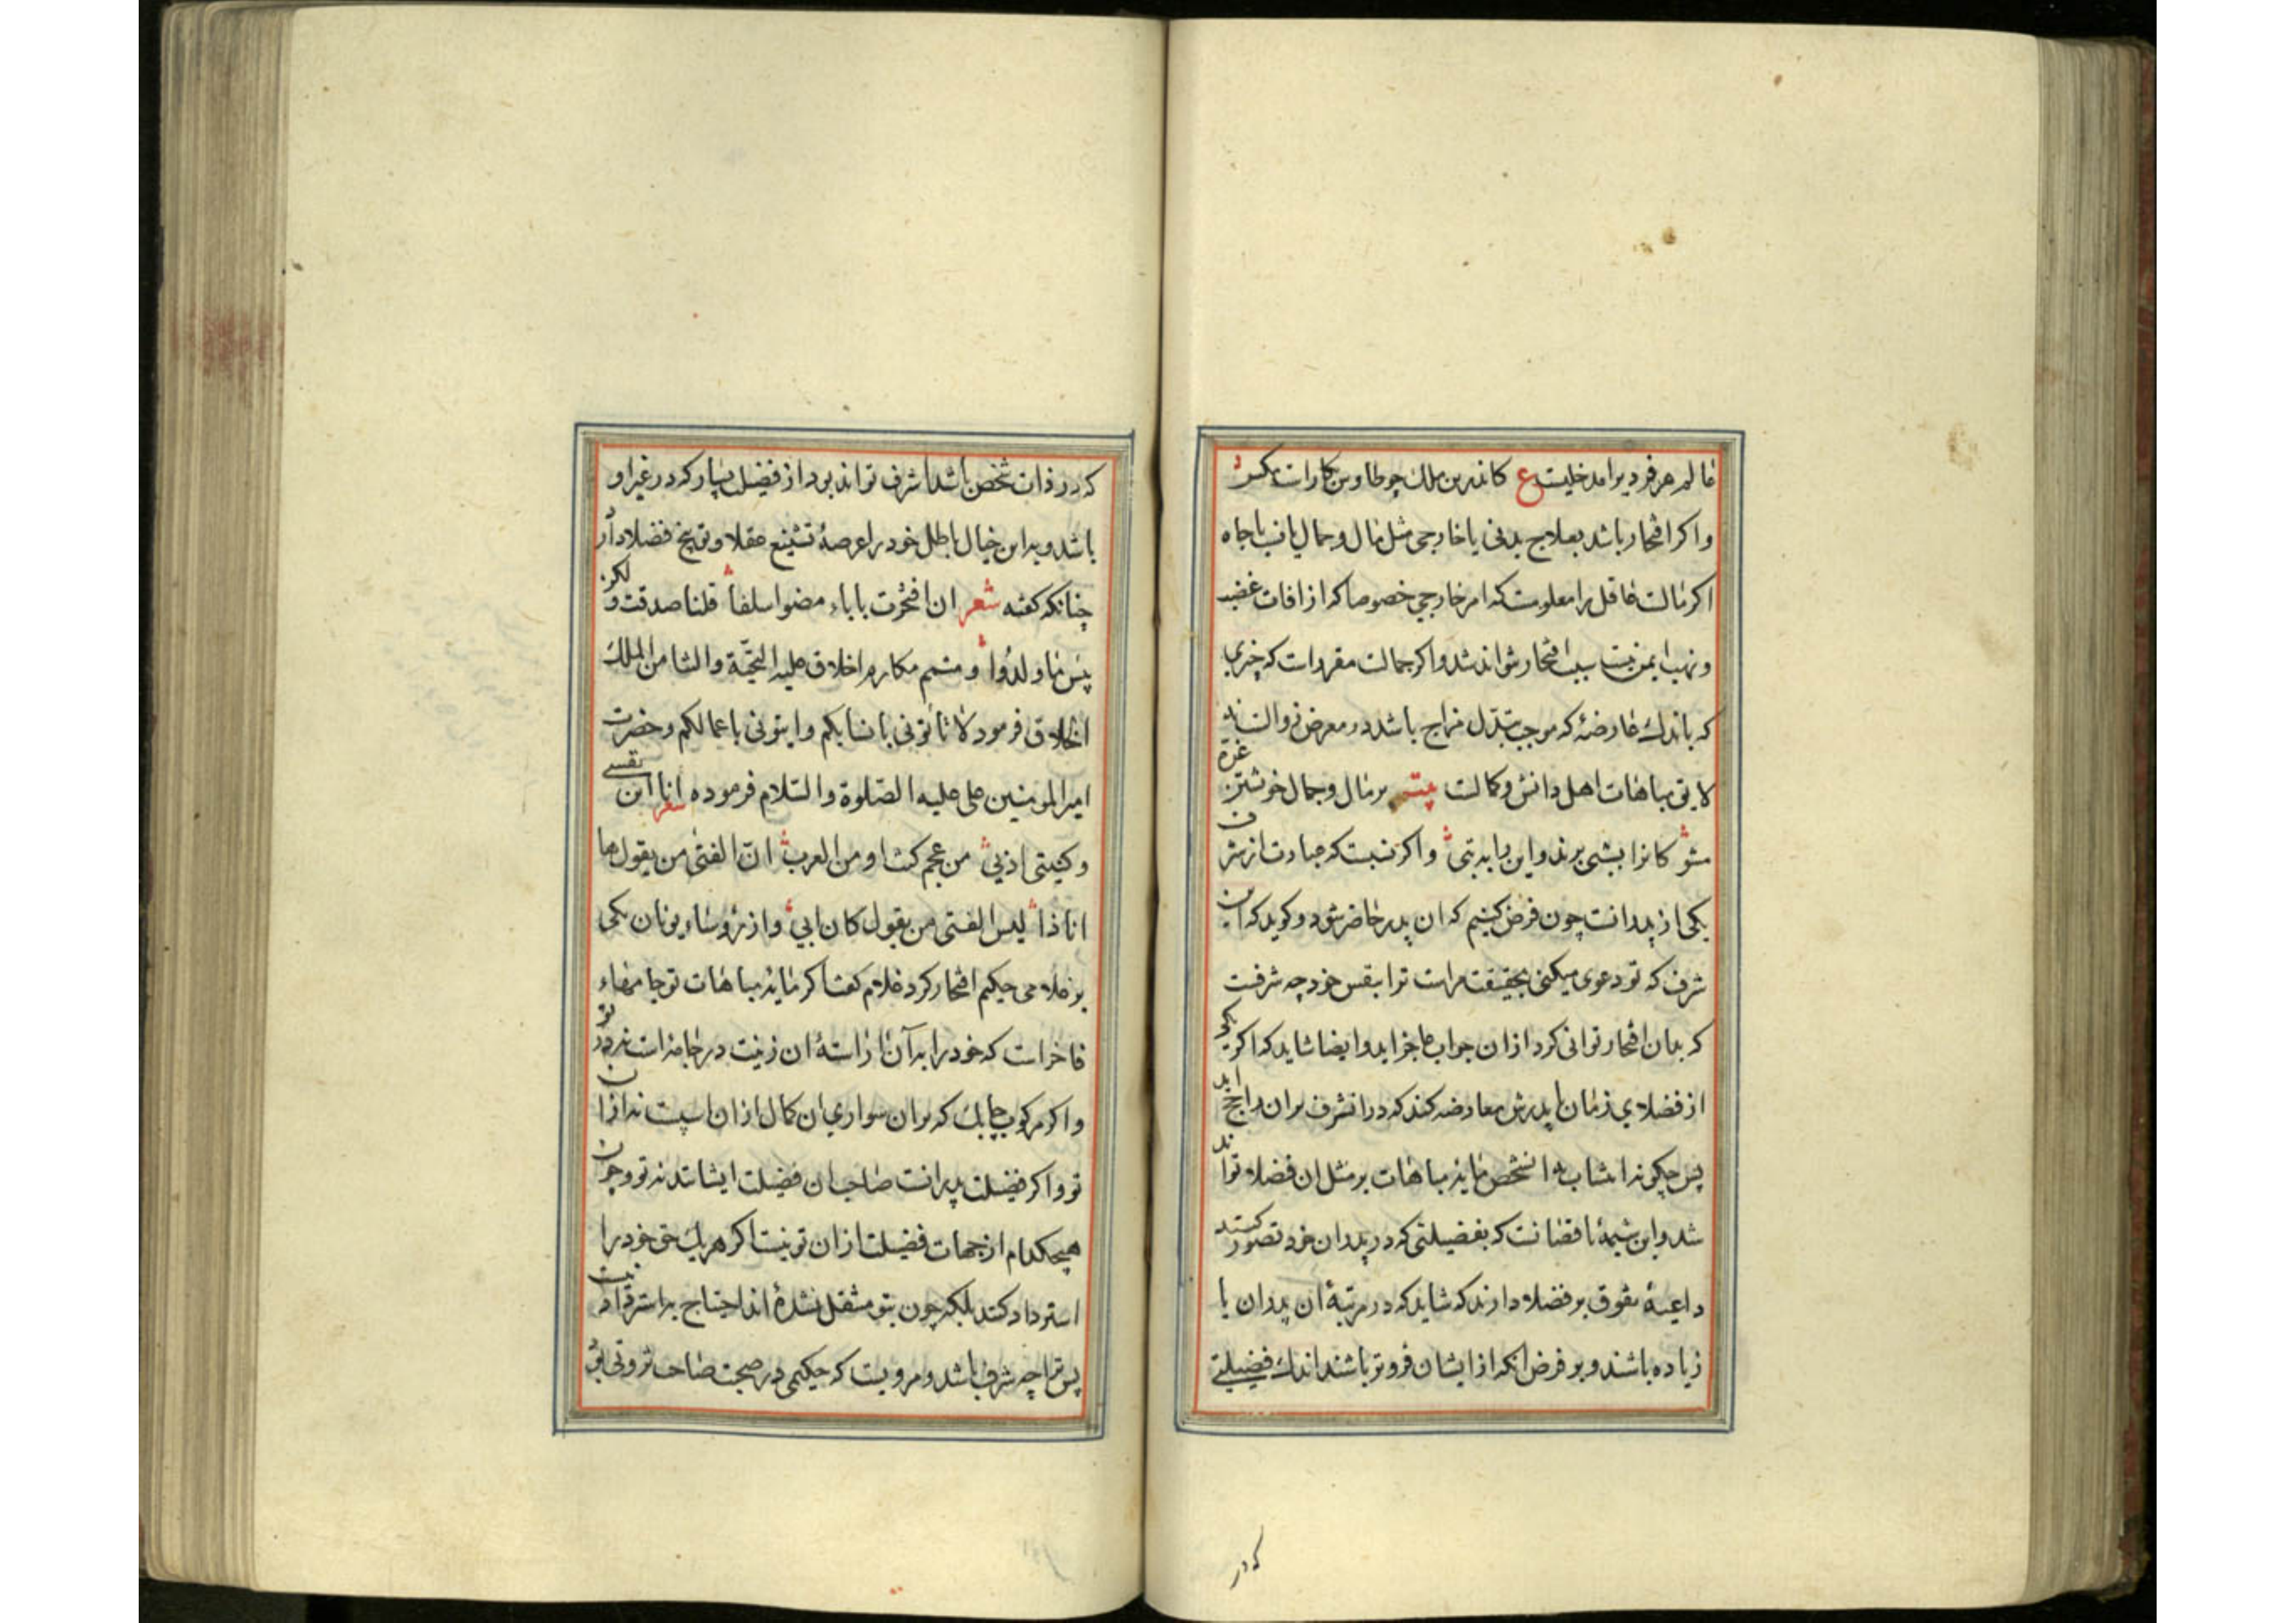 عالم هر فرد یرا مدخلیست ع کاندرین ملک چو طاوس بکارست مکس
و اکر افتخار باشد بعلاج بدنی یا خارجی مثل مال و جمال یا نسب یا جاه
اکر مالست عاقل را معلومست که امر خارجی خصوصا که از افات غصب
و نهب ایمن نیست سبب افتخار نتواند شد و اکر جمالست مقررات که چیزی
که باندک عارضهٔ که موجب تبدّل مزاج باشد در معرض زوالست نه
لایق مباهات اهل دانش و کمالست بیت بر مال و جمال خویشتن غرّه
مشو کانرا بشبی برند و این را به تبی و اکر نسبست که عبادت از شرف
یکی از پدرانست چون فرض کنیم که ان پدر حاضر شود و کوید که این
شرف که تو دعوی میکنی بحقیقت مراست ترا بنفس خود چه شرفست
که بدان افتخار توانی کرد از ان جواب عاجز اید و ایضا شاید که اکر یکی
از فضلای زمان با پدرش معارضه کند که در انشرف بران راجح اید
پس چکونه انتساب با انشخص مایهٔ مباهات بر مثل ان فضلا تواند
شد و این شیمهٔ ناقصانست که بفضیلتی که در پدران خود تصور کنند
داعیهٔ تفوق بر فضلا دارند که شاید که در مرتبهٔ ان پدران یا
زیاده باشند و بر فرض انکه از ایشان فروتر باشند اندک فضیلتی
که در
که در ذات شخص باشد اشرف تواند بود از فضیل بسیار که در غیر او
باشد و بداین خیال باطل خود را عرصهٔ تشنیع عقلا و توبیخ فضلا دارد
چنانکه کفته شعر ان افتخرت باباء مضوا سلفا قلنا صدقت و لکن
بئس ما ولدوا و متمم مکارم اخلاق علیه التحیّة و الثنا من الملک
الخلاق فرمود لا تاتونی بانسابکم و ایتونی باعمالکم و حضرت
امیر المومنین علی علیه الصلوة و السلام فرموده شعر انا ابن نفسی
و کنیتی ادبی من عجم کنت او من العرب انّ الفتی من یقول ها
انا ذا لیس الفتی من یقول کان ابی و از رؤساء یونان یکی
بر غلامی حکیم افتخار کرد غلام کفت اکر مایهٔ مباهات تو جامهاء
فاخرات که خود را به آن اراستهٔ ان زینت در جامه است نه در تو
و اکر مرکوب چابک که بران سواری ان کمال از ان اسپست نه از ان
تو و اکر فضیلت پدرانست صاحب ان فضیلت ایشانند نه تو و چون
هیچکدام از جهات فضیلت از ان تو نیست اکر هر یک حق خود را
استرداد کنند بلکه چون بتو منتقل نشدهٔ اند احتیاج به استرداد نیست
پس ترا چه شرف باشد و مرویست که حکیمی در صحبت صاحب ثروتی بو